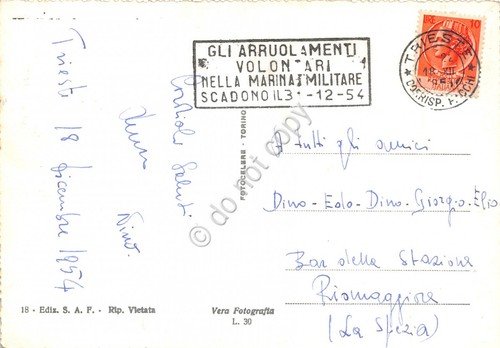 Trieste 18 dicembre 1954
Cordiali Saluti
Nino.
GLI ARRUOLAMENTI
VOLONTARI
NELLA MARINA MILITARE
SCADONO IL 31-12-54
TRIESTE
CORRISP. PACCHI
FOTOCELERE - TORINO
A tutti gli amici
Dino-Eolo-Dino-Giorgio-Elio
Bar della Stazione
Riomaggiore
(La Spezia)
18 - Ediz. S. A. F. - Rip. Vietata
Vera Fotografia
L. 30
do not copy